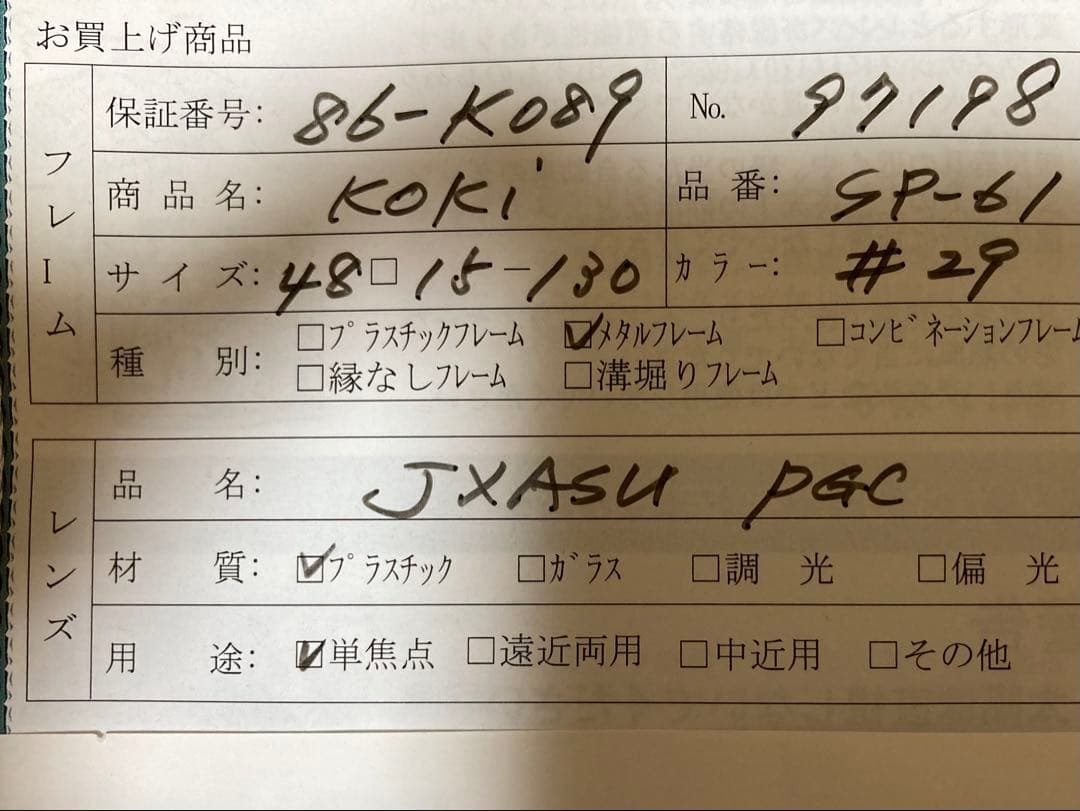 お買上げ商品
フレーム
保証番号: 86-K089 No. 97198
商品名: KOKi 品番: SP-61
サイズ: 48□15-130 カラー: #29
種別: □プラスチックフレーム ☑メタルフレーム □コンビネーションフレーム
□縁なしフレーム □溝堀りフレーム
レンズ
品名: JXASU PGC
材質: ☑プラスチック □ガラス □調光 □偏光
用途: ☑単焦点 □遠近両用 □中近用 □その他